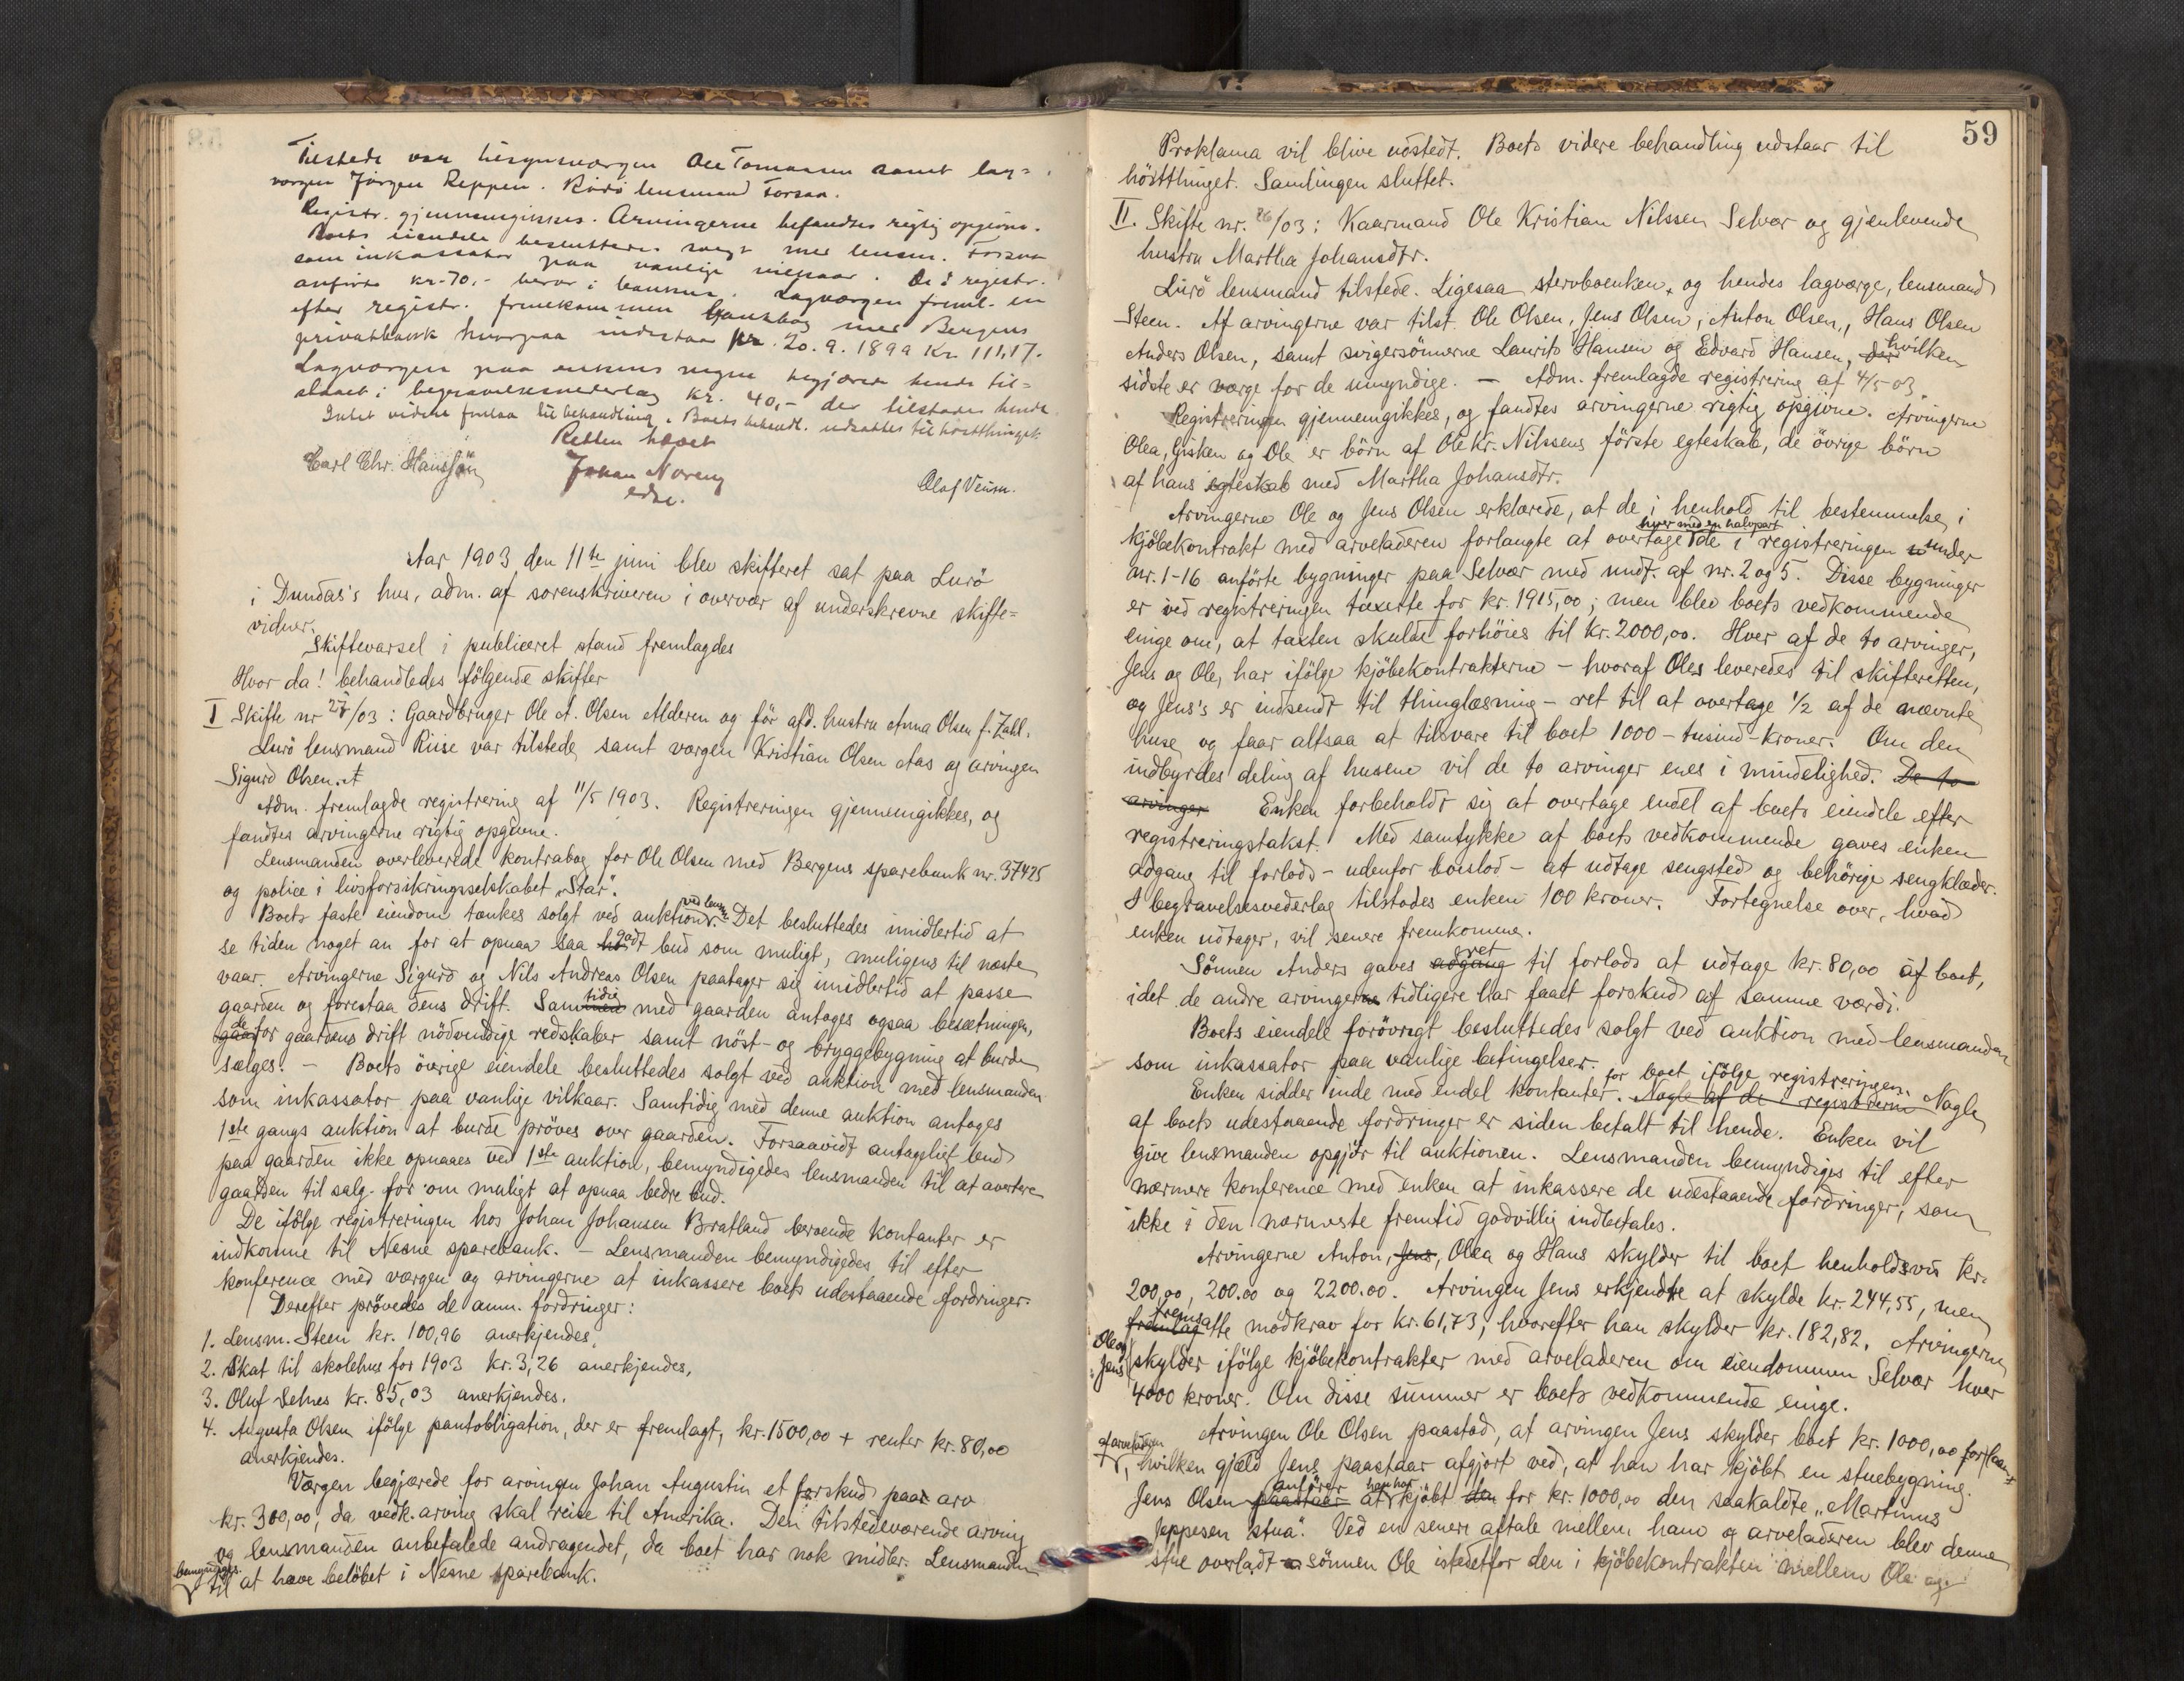 Tilstede var tilsynsværgen Ole Tomassen samt lag-
værgen Jørgen Reppen. Rödö lensmand Forsaa.
Registr. gjennemgikkes. Arvingerne befandtes rigtig opgivne.
Boets eiendele besluttedes solgt med lensm. Forsaa
som inkassator paa vanlige vilkaar. De i registr.
anförte kr. 70,- beror i banken. Lagværgen freml. en
efter registr. fremkommen bankbog med Bergens
privatbank hvorpaa indestaar pr. 20.9.1899 Kr 111,17.
Lagværgen paa enkens vegne begjærede hende til-
staaet i begravelsesvederlag kr. 40,- der tilstodes hende
Intet videre forelaa til behandling. Boets behandl. udsattes til höstthinget.
Retten hævet
Carl Chr. Hanssön Johan Noreng Olaf Veum.
edsv.
Aar 1903 den 11te juni blev skifteret sat paa Lurö
i Dundas's hus, adm. af sorenskriveren i overvær af underskrevne skifte-
vidner.
Skiftevarsel i publiceret stand fremlagdes
Hvor da! behandledes fölgende skifter
I Skifte nr 27/03: Gaardbruger Ole A. Olsen Alderen og för afd. hustru Anna Olsen f. Zahl.
Lurö lensmand Riise var tilstede, samt værgen Kristian Olsen Aas og arvingen
Sigurd Olsen.
Adm. fremlagde registrering af 11/5 1903. Registreringen gjennemgikkes, og
fandtes arvingerne rigtig opgivne.
Lensmanden overleverede kontrabog for Ole Olsen med Bergens sparebank nr. 37425
og police i livsforsikringsselskabet "Star".
Boets faste eiendom tænkes solgt ved auktion ved lensm. Det besluttedes imidlertid at
se tiden noget an for at opnaa saa godt bud som muligt, muligens til næste
vaar. Arvingerne Sigurd og Nils Andreas Olsen paatager sig imidlertid at passe
gaarden og forestaa dens drift. Samtidig med gaarden antoges ogsaa besætningen,
de for gaardens drift nödvendige redskaber samt nöst- og bryggebygning at burde
sælges. - Boets övrige eiendele besluttedes solgt ved auktion med lensmanden
som inkassator paa vanlige vilkaar. Samtidig med denne auktion antoges
1ste gangs auktion at burde pröves over gaarden. Forsaavidt antageligt bud
paa gaarden ikke opnaaes ved 1ste auktion, bemyndigedes lensmanden til at avertere
gaarden til salg for om muligt at opnaa bedre bud.
De ifölge registreringen hos Johan Johansen Bratland beroende kontanter er
indkomne til Nesne sparebank. - Lensmanden bemyndigedes til efter
konference med værgen og arvingerne at inkassere boets udestaaende fordringer.
Derefter prövedes de anm. fordringer:
1. Lensm. Steen kr. 100,96 anerkjendes.
2. Skat til skolehus for 1903 kr. 3,26 anerkjendes.
3. Oluf Selnes kr. 85,03 anerkjendes.
4. Augusta Olsen ifölge pantobligation, der er fremlagt, kr. 1500,00 + renter kr. 80,00
anerkjendes.
Værgen begjærede for arvingen Johan Augustin et forskud paa arv
kr. 300,00, da vedk. arving skal reise til Amerika. Den tilstedeværende arving
og lensmanden anbefalede andragendet, da boet har nok midler. Lensmanden
bemyndiges
til at hæve belöbet i Nesne sparebank.
59
Proklama vil blive udstedt. Boets videre behandling udstaar til
höstthinget. Samlingen sluttet.
II. Skifte nr. 26/03: Kaarmand Ole Kristian Nilssen Selvær og gjenlevende
hustru Martha Johansdtr.
Lurö lensmand tilstede. Ligesaa stervboenken, og hendes lagværge, lensmand
Steen. Af arvingerne var tilst. Ole Olsen, Jens Olsen, Anton Olsen, Hans Olsen
Anders Olsen, samt svigersönnerne Laurits Hansen og Edvard Hansen, hvilken
sidste er værge for de umyndige. - Adm. fremlagde registrering af 4/5 03
Registreringen gjennemgikkes, og fandtes arvingerne rigtig opgivne. Arvingerne
Olea, Gisken og Ole er börn af Ole Kr. Nilssens förste egteskab, de övrige börn
af hans egteskab med Martha Johansdtr.
Arvingerne Ole og Jens Olsen erklærede, at de i henhold til bestemmelse i
kjöbekontrakt med arveladeren forlangte at overtage hver med en halvpart de i registreringen under
nr. 1-16 anförte bygninger paa Selvær med undt. af nr. 2 og 5. Disse bygninger
er ved registreringen taxerte for kr. 1915,00; men blev boets vedkommende
enige om, at taxten skulde forhöies til kr. 2000,00. Hver af de to arvinger,
Jens og Ole, har ifölge kjöbekontrakterne - hvoraf Oles leveredes til skifteretten,
og Jens's er indsendt til thinglæsning - ret til at overtage 1/2 af de nævnte
huse og faar altsaa at tilsvare til boet 1000 - tusind - kroner. Om den
indbyrdes deling af husene vil de to arvinger enes i mindelighed. De to
arvinger Enken forbeholdt sig at overtage endel af boets eiendele efter
registreringstakst. Med samtykke af boets vedkommende gaves enken
adgang til forlods - udenfor boeslod - at udtage sengsted og behörige sengklæder.
I begravelsesvederlag tilstodes enken 100 kroner. Fortegnelse over, hvad
enken udtager, vil senere fremkomme.
Sönnen Anders gaves adgang ret til forlods at udtage kr. 80,00 af boet,
idet de andre arvinger tidligere har faaet forskud af samme værdi.
Boets eiendele forövrigt besluttedes solgt ved auktion med lensmanden
som inkassator paa vanlige betingelser.
Enken sidder inde med endel kontanter for boet ifölge registreringen. Nogle af de i registrerin Nogle
af boets udestaaende fordringer er siden betalt til hende. Enken vil
give lensmanden opgjör til auktionen. Lensmanden bemyndiges til efter
nærmere konference med enken at inkassere de udestaaende fordringer, som
ikke i den nærmeste fremtid godvillig indbetales.
Arvingerne Anton, Jens, Olea og Hans skylder til boet henholdsvis kr.
200,00, 200.00 og 2200.00. Arvingen Jens erkjendte at skylde kr. 244,55, men
fremsatte modkrav for kr. 61,73, hvorefter han skylder kr. 182,82. Arvingerne
Ole og
Jens skylder ifölge kjöbekontrakter med arveladeren om eiendommen Selvær hver
4000 kroner. Om disse summer er boets vedkommende enige.
Arvingen Ole Olsen paastod, at arvingen Jens skylder boet kr. 1000,00 for laan
af arveladeren, hvilken gjæld Jens paastaar afgjort ved, at han har kjöbt en stuebygning.
Jens Olsen paastaar anförer at han har kjöbt den for kr. 1000,00 den saakaldte "Martinus
Jeppesen stua". Ved en senere aftale mellem ham og arveladeren blev denne
stue overladt sönnen Ole istedetfor den i kjöbekontrakten mellem Ole og